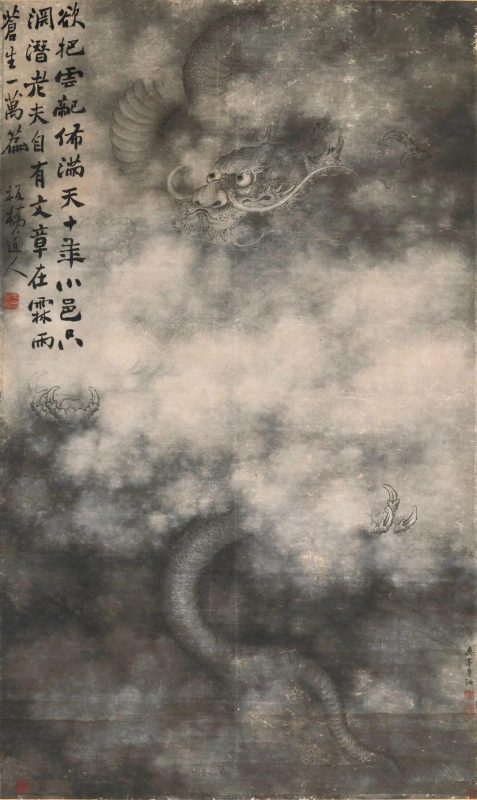 欲把雲佈滿天十年小邑只
潛老夫自有文章在霖雨
蒼生一萬篇 板橋道人